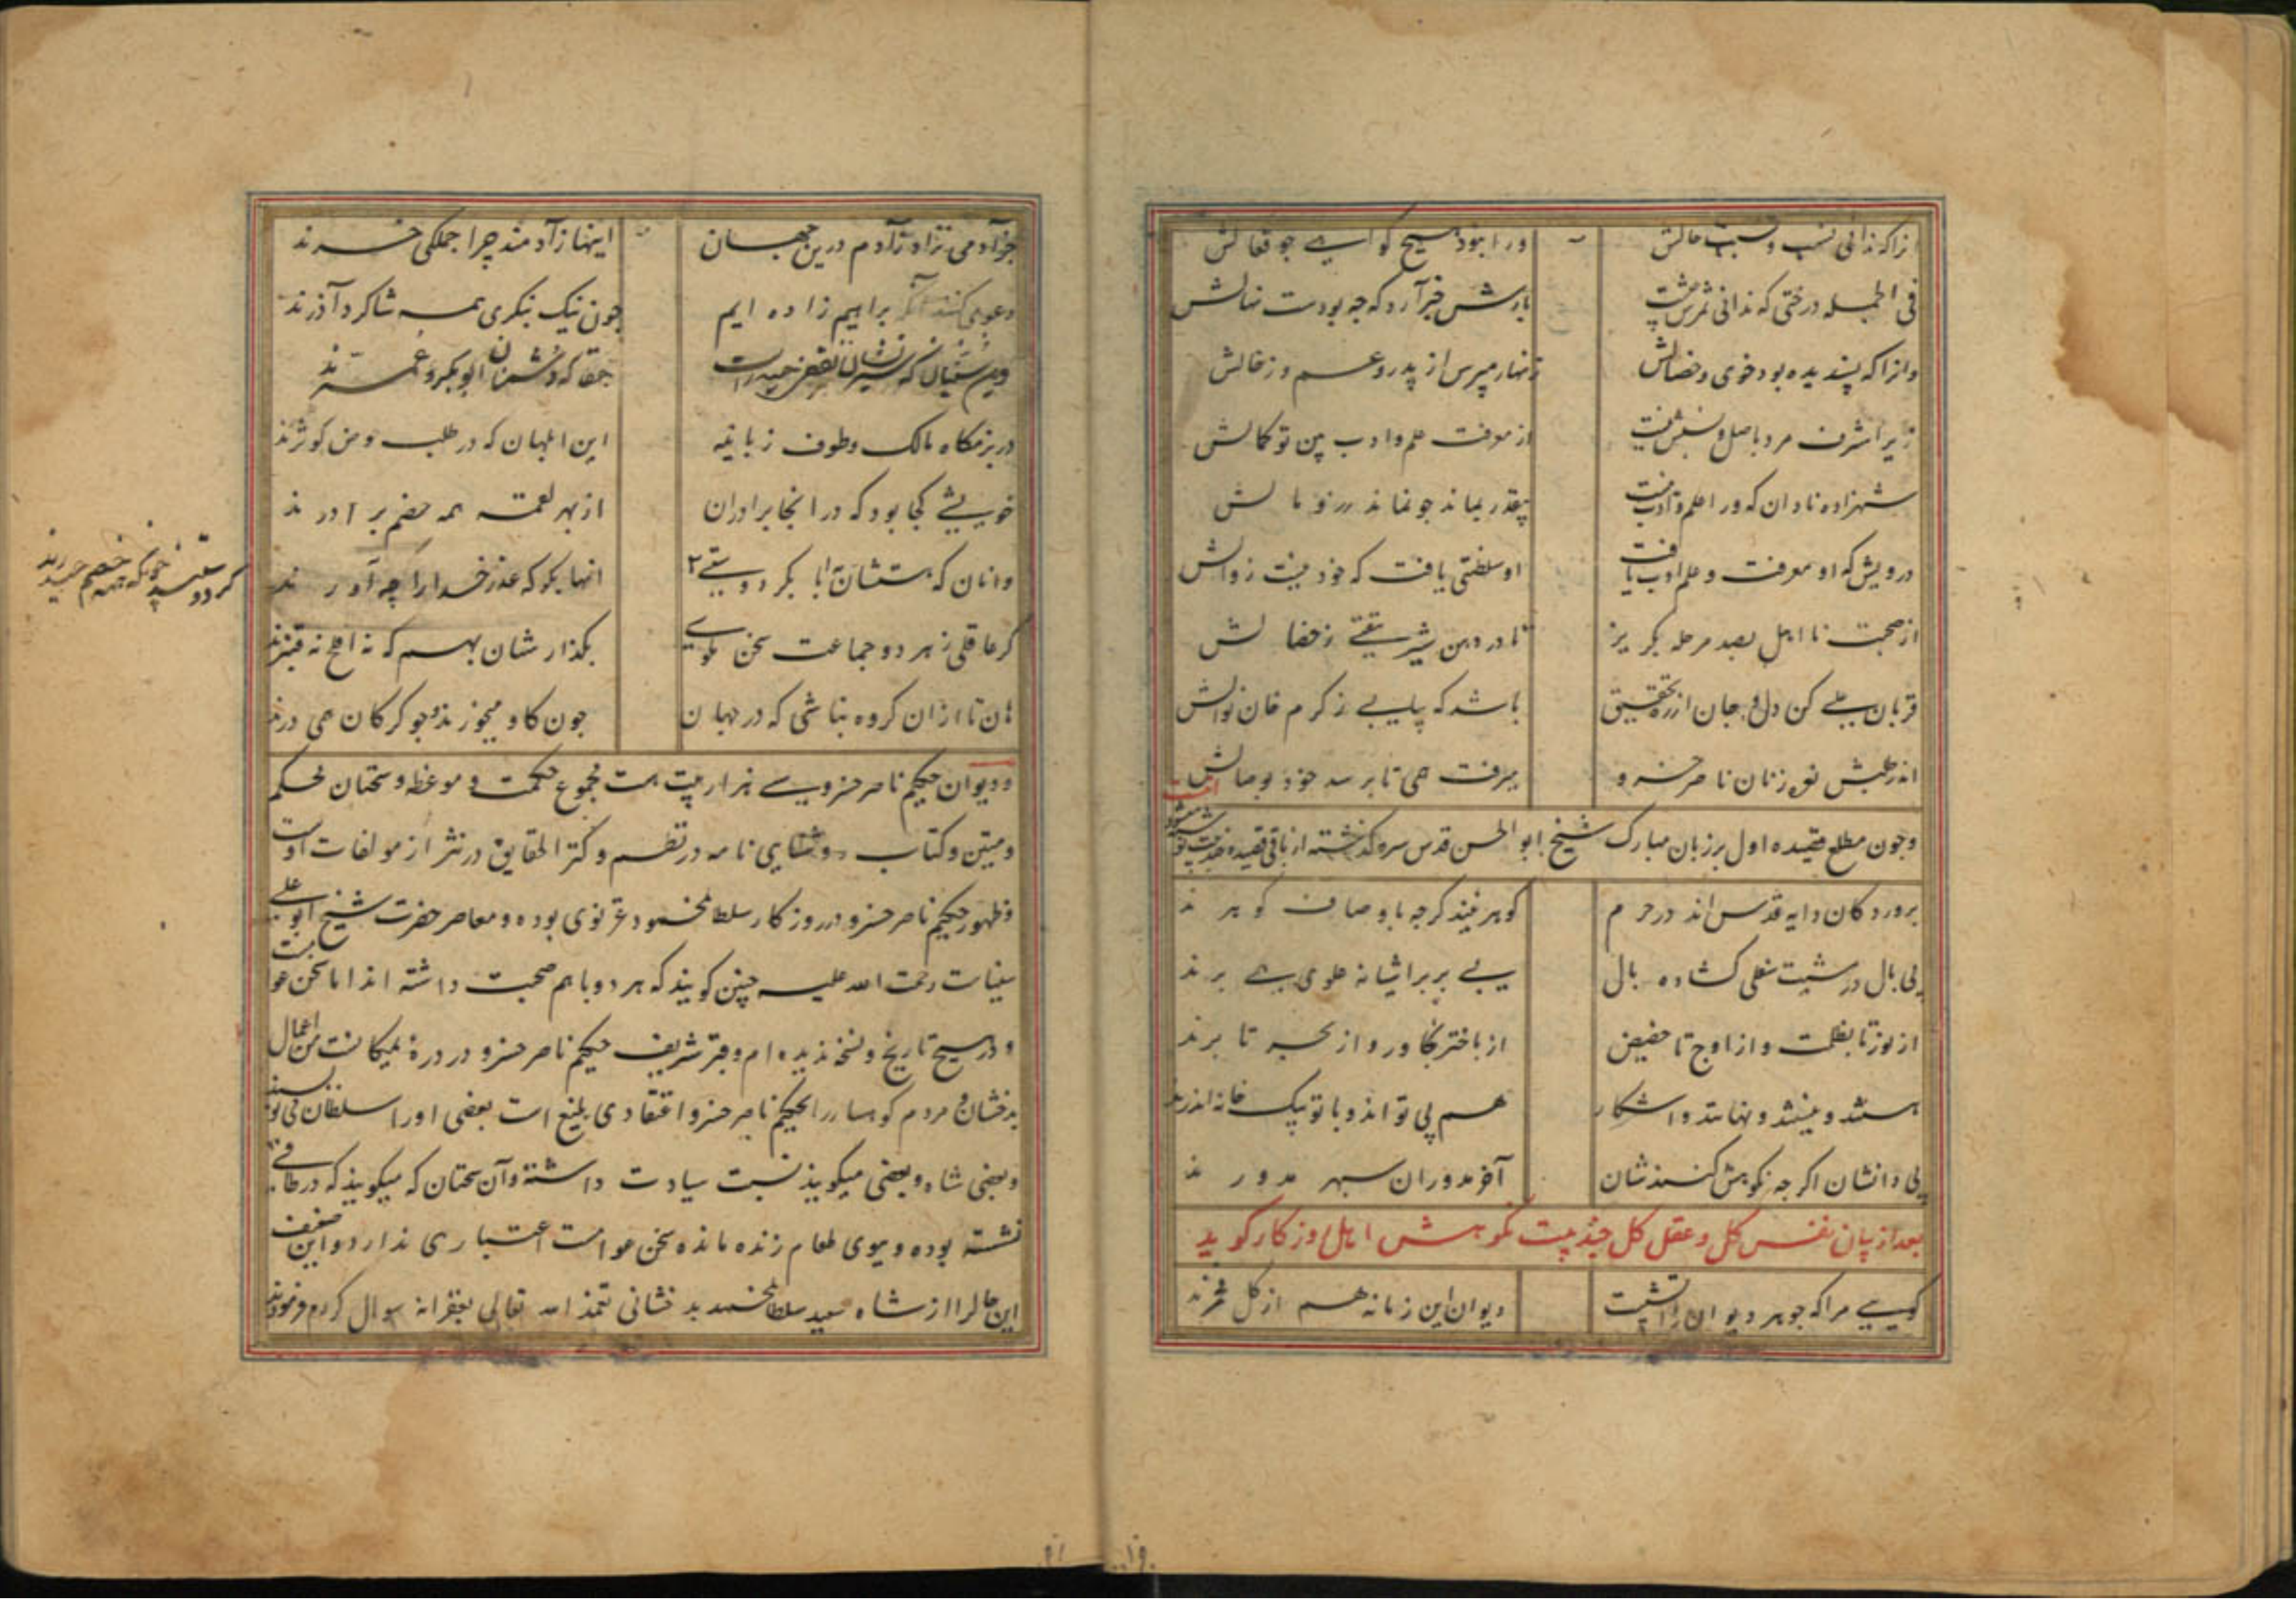 انرا که ندانی نسب و نسبت حالش ورا نبود هیچ گواهی چو فعالش
فی الجمله درختی که ندانی ثمرش چیست بارش خبر آرد که چه بودست نهالش
وانرا که پسندیده بود خوی و خصالش زنهار مپرس از پدر و عم و ز خالش
زیرا شرف مرد باصل و نسبش نیست از معرفت علم و ادب بین تو کمالش
شهزاده نادان که ورا علم و ادب نیست چو نماند زر و مالش
درویش که او معرفت و علم و ادب یافت او سلطنتی یافت که خود نیست زوالش
از صحبت نا اهل بصد مرحله بکریز
قربان علی کن دل و جان از ره تحقیق باشد که بیابی ز کرم خان نوالش
اندر طلبش نعره زنان ناصر خسرو میرفت همی تا برسد خود بوصالش
وچون مطلع قصیده اول بر زبان مبارک شیخ ابو الحسن قدس سره کذشته از باقی قصیده
پروردکان دایه قدس اند در حرم کوهر نیند کرچه باوصاف کوهرند
بی بال در نشیب سفلی کشاده بال بی پر بر اشیانه علوی همی پرند
از نور تا بظلمت و از اوج تا حضیض از باختر بخاور و از بحر تا برند
هستند و نیستند و نهانند و اشکار هم بی تو اند و با تو بیک خانه اندرند
بی دانشان اکرچه نکوهش کنندشان آخر مدوران سپهر مدورند
بعد از بیان نفس کل و عقل کل چند بیت نکوهش اهل روزکار کوید
کویی مرا که جوهر دیوان ز آتشست دیوان این زمانه هم از کل مخمرند
جز آدمی نزاد ز آدم درین جهان اینها ز آدمند چرا جملکی خرند
دعوی کنند آنکه براهیم زاده ایم چون نیک بنکری همه شاکرد آذرند
حقا که دشمنان ابو بکر و عمرند
در بزمکاه مالک و طوف زبانیه این ابلهان که در طلب حوض کوثرند
خویشی کجا بود که در انجا برادران از بهر لقمه همه خصم برادرند
وانان که هستشان بابا بکر دوستی انها بکو که عذر خدا را چه آورند
کر عاقلی ز هر دو جماعت سخن مکوی بکذارشان بهم که نه افلح نه قنبرند
هان تا ازان کروه نباشی که در جهان چون کاو میخورند و چو کرکان همی درند
ودیوان حکیم ناصر خسرو سی هزار بیت هست مجموع حکمت و موعظه و سخنان محکم
ومتین و کتاب روشنایی نامه در نظم و کنز الحقایق در نثر از مولفات اوست
وظهور حکیم ناصر خسرو در روزکار سلطان محمود غزنوی بوده و معاصر حضرت شیخ ابو علی
سینات رحمت الله علیه چنین کویند که هر دو باهم صحبت داشته اند اما سخن عوامست
و در هیچ تاریخ و نسخه ندیده ام و قبر شریف حکیم ناصر خسرو در دره یمکانست من اعمال
بدخشان و مردم کوهسار را بحکیم ناصر خسرو اعتقادی بلیغ است بعضی او را سلطان می نویسند
وبعضی شاه و بعضی میکویند نسبت سیادت داشته و آن سخنان که میکویند که در طاقی
نشسته بوده و ببوی طعام زنده مانده سخن عوامست اعتباری ندارد و این ضعیف
این حال را از شاه سعید سلطان محمد بدخشانی تغمد الله تعالی بغفرانه سوال کردم فرمودند